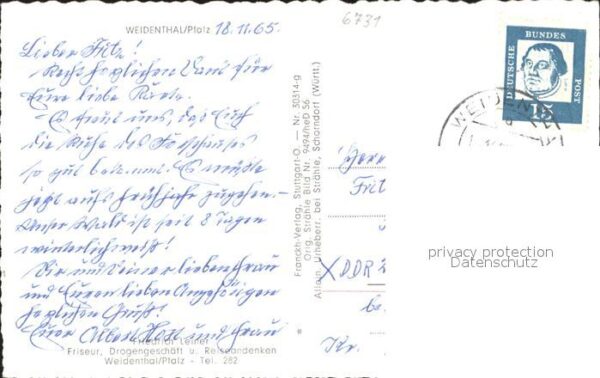 WEIDENTHAL/Pfalz 18.11.65.
Lieber Fritz!
Recht herzlichen Dank für
Eure liebe Karte.
Es freut uns, daß Euch
die Ruhe des Forsthauses
so gut bekommt. Es müßte
jetzt aufs Frühjahr zugehen.-
Unser Wald ist seit 8 Tagen
winterlich weiß!
Dir und Deiner lieben Frau
und Euren lieben Angehörigen
herzlichen Gruß!
Euer Albert und Frau
Friedrich Leiner
Friseur, Drogengeschäft u. Reiseandenken
Weidenthal/Pfalz - Tel. 282
Franckh-Verlag, Stuttgart-O. — Nr. 30314-g
Orig. Strähle Bild Nr. 9494/hieD 56
Allein. Urheberr. bei Strähle, Schorndorf (Württ.)
6731
DEUTSCHE BUNDES POST
15
WEIDENTHAL
Herr
Frit
X DDR 2
be.
Kr.
privacy protection
Datenschutz